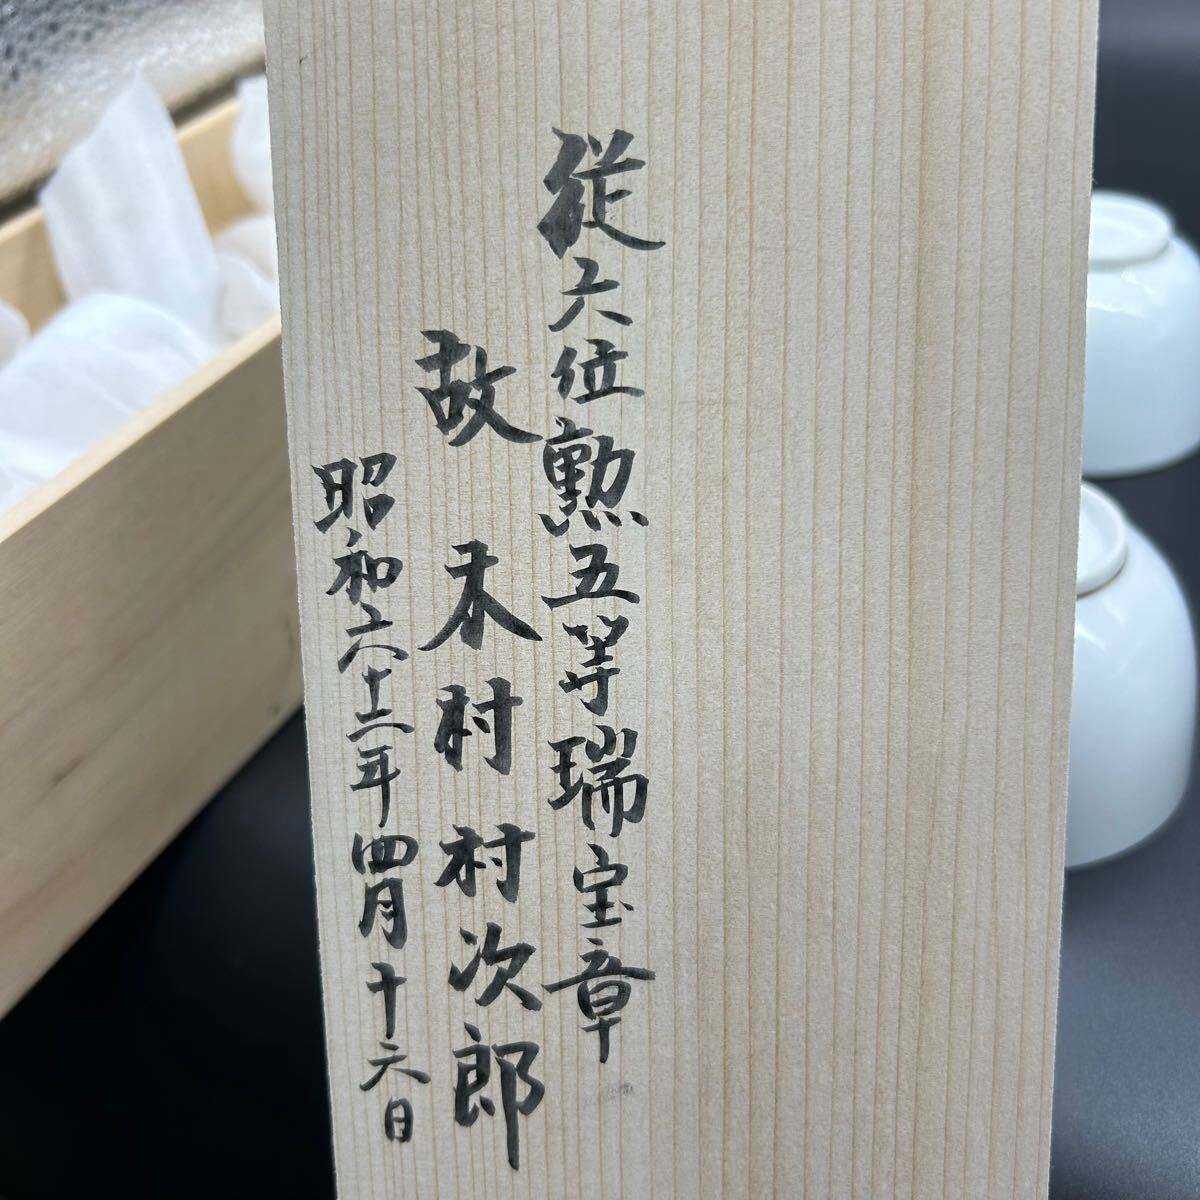 従六位勲五等瑞宝章
故 木村村次郎
昭和六十二年四月十六日